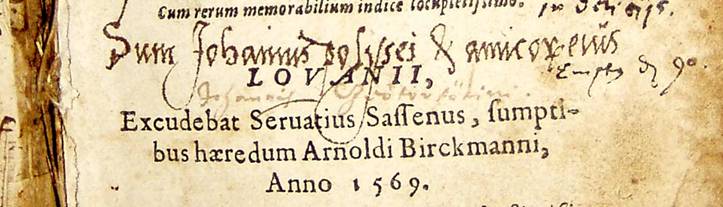 Cum rerum memorabilium indice locupletissimo.
Sum Johannis & amicorum eius
LOVANII,
Johannis
Excudebat Seruatius Sassenus, sumpti-
bus hæredum Arnoldi Birckmanni,
Anno 1569.